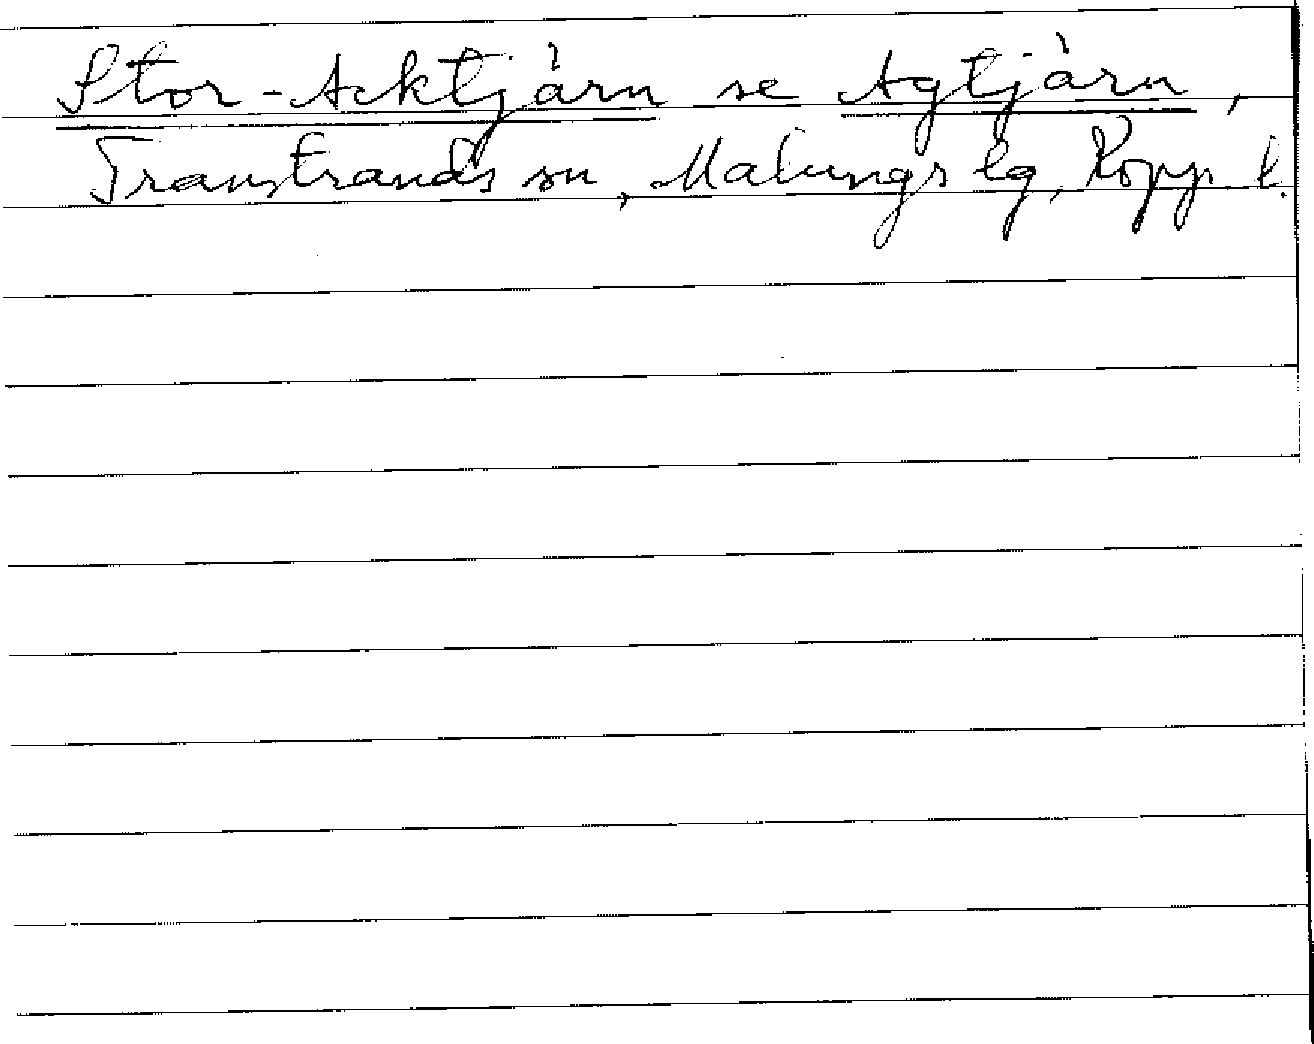 Stor-Acktjärn se Agtjärn,
Transtrands sn, Malungs tg, Kopp. l.